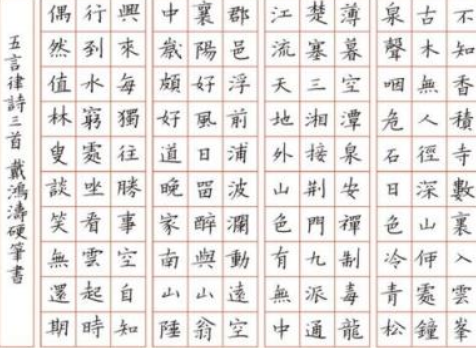 不知香積寺數裏入雲峯
古木無人徑深山何處鐘
泉聲咽危石日色冷青松
薄暮空潭泉安禪制毒龍
楚塞三湘接荊門九派通
江流天地外山色有無中
郡邑浮前浦波瀾動遠空
襄陽好風日留醉與山翁
中歲頗好道晚家南山陲
興來每獨往勝事空自知
行到水窮處坐看雲起時
偶然值林叟談笑無還期
五言律詩三首 戴鴻濤硬筆書